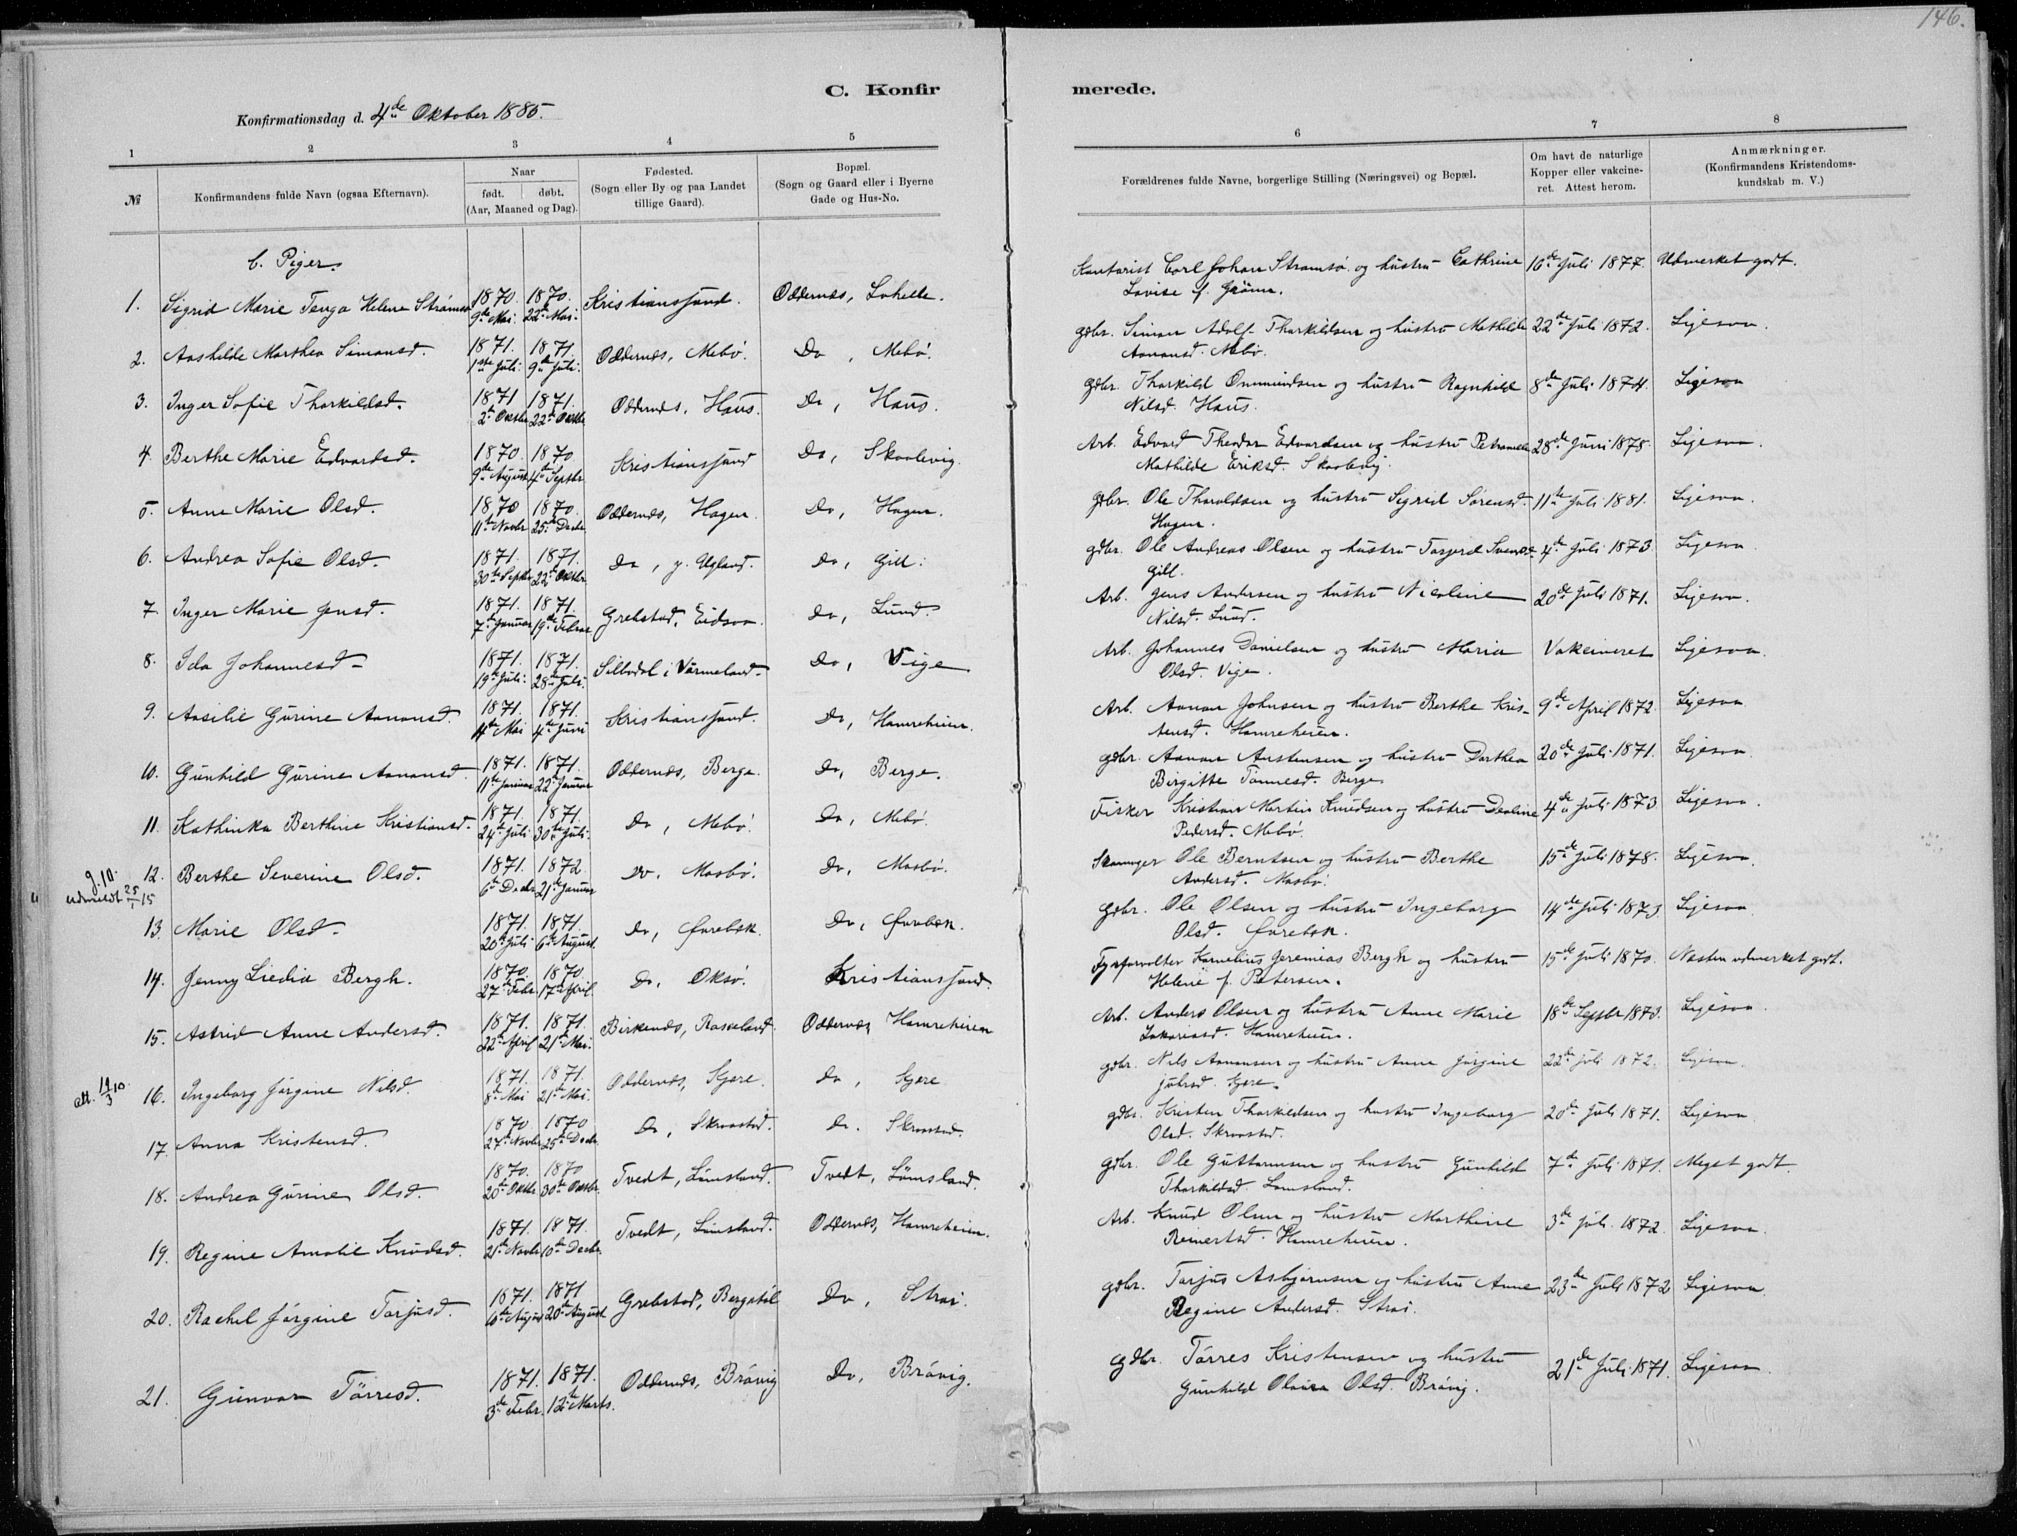 146.
C. Konfirmerede.
Konfirmationsdag d. 4de Oktober 1885.
1 2 3 4 5 6 7 8
№ Konfirmandens fulde Navn (ogsaa Efternavn). Naar født. døbt. (Aar, Maaned og Dag). Fødested. (Sogn eller By og paa Landet tillige Gaard). Bopæl. (Sogn og Gaard eller i Byerne Gade og Hus-No. Forældrenes fulde Navne, borgerlige Stilling (Næringsvei) og Bopæl. Om havt de naturlige Kopper eller vakcineret. Attest herom. Anmærkninger. (Konfirmandens Kristendomskundskab m. V.)
b. Piger.
1. Sigrid Marie Tenga Helene Strømsø 1870. 9de Mai. 1870. 22de Mai. Kristianssand. Oddernes, Lahelle. Kontorist Carl Johan Strømsø og hustru Cathrine Lovise f. Grønn. 16de Juli 1877. Udmerket godt.
2. Aashilde Marthea Simonsd. 1871. 1ste Juli. 1871. 9de Juli. Oddernes, Mebø. Do, Mebø. gdbr. Simon Adolf Thorkildsen og hustru Mathilde Aanonsd. Mebø. 22de Juli 1872. Ligesaa.
3. Inger Sofie Thorkildsd. 1871 2de Oktbr 1871. 22de Oktbr Oddernes, Haus. Do, Haus. gdbr. Thorkild Ommundsen og hustru Ragnhild Nilsd. Haus. 8de Juli 1874. Ligesaa
4. Berthe Marie Edvardsd. 1870. 9de August 1870 4de Septbr. Kristianssand Do, Skaalevig. Arb. Edvard Theodor Edvardsen og hustru Petronelle Mathilde Eriksd. Skaalevig. 28de Juni 1878. Ligesaa.
5. Anne Marie Olsd. 1870 11te Novbr 1870. 25de Decbr Oddernes, Hagen. Do, Hagen. gdbr. Ole Tharaldsen og hustru Sigrid Sørensd. Hagen. 11te Juli 1881. Ligesaa.
6. Andrea Sofie Olsd. 1871. 30te Septbr 1871. 22de Oktbr. Do, y. Ugland. Do, Gill. gdbr. Ole Andreas Olsen og hustru Torgerd Svendsd. Gill. 4de Juli 1873 Ligesaa
7. Inger Marie Jensd. 1871. 7de Januar 1871. 19de Februar Grebstad, Eidsaa. Do, Lund. Arb. Jens Andersen og hustru Nicoline Nilsd. Lund. 20de Juli 1871. Ligesaa.
8. Ida Johannesd. 1871. 19de Juli. 1871. 28de Juli. Silbodal i Värmeland. Do, Vige Arb. Johannes Danielsen og hustru Maria Olsd. Vige. Vakcineret Ligesaa.
9. Aasilie Gurine Aanonsd. 1871. 14de Mai 1871. 4de Juni Kristianssand. Do, Hamreheien. Arb. Aanon Johnsen og hustru Berthe Kristensd. Hamreheien. 9de April 1872 Ligesaa
10. Gunhild Gurine Aanonsd. 1871. 11te Januar 1871. 22de Januar Oddernes, Berge. Do, Berge. gdbr. Aanon Austensen og hustru Dorthea Birgitte Tønnesd. Berge. 20de Juli 1871. Ligesaa.
11. Kathinka Berthine Kristiansd. 1871. 24de Juli 1871. 30te Juli. Do, Mebø. Do, Mebø. Fisker Kristian Martin Knudsen og hustru Deoline Pedersd. Mebø. 4de Juli 1873 Ligesaa.
g. 10. udmeldt 25/1 15
12. Berthe Severine Olsd. 1871. 6te Decbr 1872 21de Januar Do, Mosbø. Do, Mosbø. Ole Berntsen og hustru Berthe Andersd. Mosbø. 15de Juli 1878. Ligesaa.
13. Marie Olsd. 1871. 20de Juli 1871. 6te August. Do, Farebæk. Do, Farebæk. gdbr. Ole Olsen og hustru Ingeborg Olsd. Farebæk. 14de Juli 1873 Ligesaa
14. Jenny Liedia Bergh. 1870. 27de Febr. 1870. 17de April. Do, Oksø. Kristianssand. Fyrforvalter Kornelius Jeremias Bergh og hustru Helene f. Petersen. 15de Juli 1870. Næsten udmerket godt.
15. Astrid Anne Andersd. 1871. 22de April 1871. 21de Mai. Birkenes, Rosseland. Oddernes Hamreheien Arb. Anders Olsen og hustru Anne Marie Zakariasd. Hamreheien. 18de Septbr 1873. Ligesaa.
att. 14/3 10.
16. Ingeborg Jørgine Nilsd. 1871. 8de Mai 1871. 21de Mai. Oddernes, Gjere. Do, Gjere gdbr. Nils Aanonsen og hustru Anne Jørgine Julusd. Gjere. 22de Juli 1872. Ligesaa.
17. Anna Kristensd. 1870. 27de Novbr 1870 25de Decbr. Do, Skraastad. Do. Skraastad. gdbr. Kristen Thorkildsen og hustru Ingeborg Olsd. Skraastad. 20de Juli 1871. Ligesaa
18. Andrea Gurine Olsd. 1870. 20de Oktbr 1870 30te Oktbr. Tvedt, Lømsland. Tvedt, Lømsland. gdbr. Ole Guttormsen og hustru Gunhild Thorkildsd. Lømsland. 7de Juli 1871. Meget godt.
19. Regine Amalie Knudsd. 1871. 21de Novbr 1871. 10de Decbr Tvedt, Lømsland. Oddernes, Hamreheien. Arb. Knud Olsen og hustru Marthine Reinertsd. Hamreheien. 3de Juli 1872. Ligesaa.
20. Rachel Jørgine Torjusd. 1871. 6te August 1871 20de August Grebstad, Bergstøl Do, Strai. gdbr. Torjus Asbjørnsen og hustru Anne Regine Andersd. Strai. 23de Juli 1872 Ligesaa
21. Gunvor Tørresd. 1871. 3de Febr. 1871. 12te Marts. Oddernes, Bråvig Do, Bråvig. gdbr. Tørres Kristensen og hustru Gunhild Olava Olsd. Bråvig. 21de Juli 1871. Ligesaa